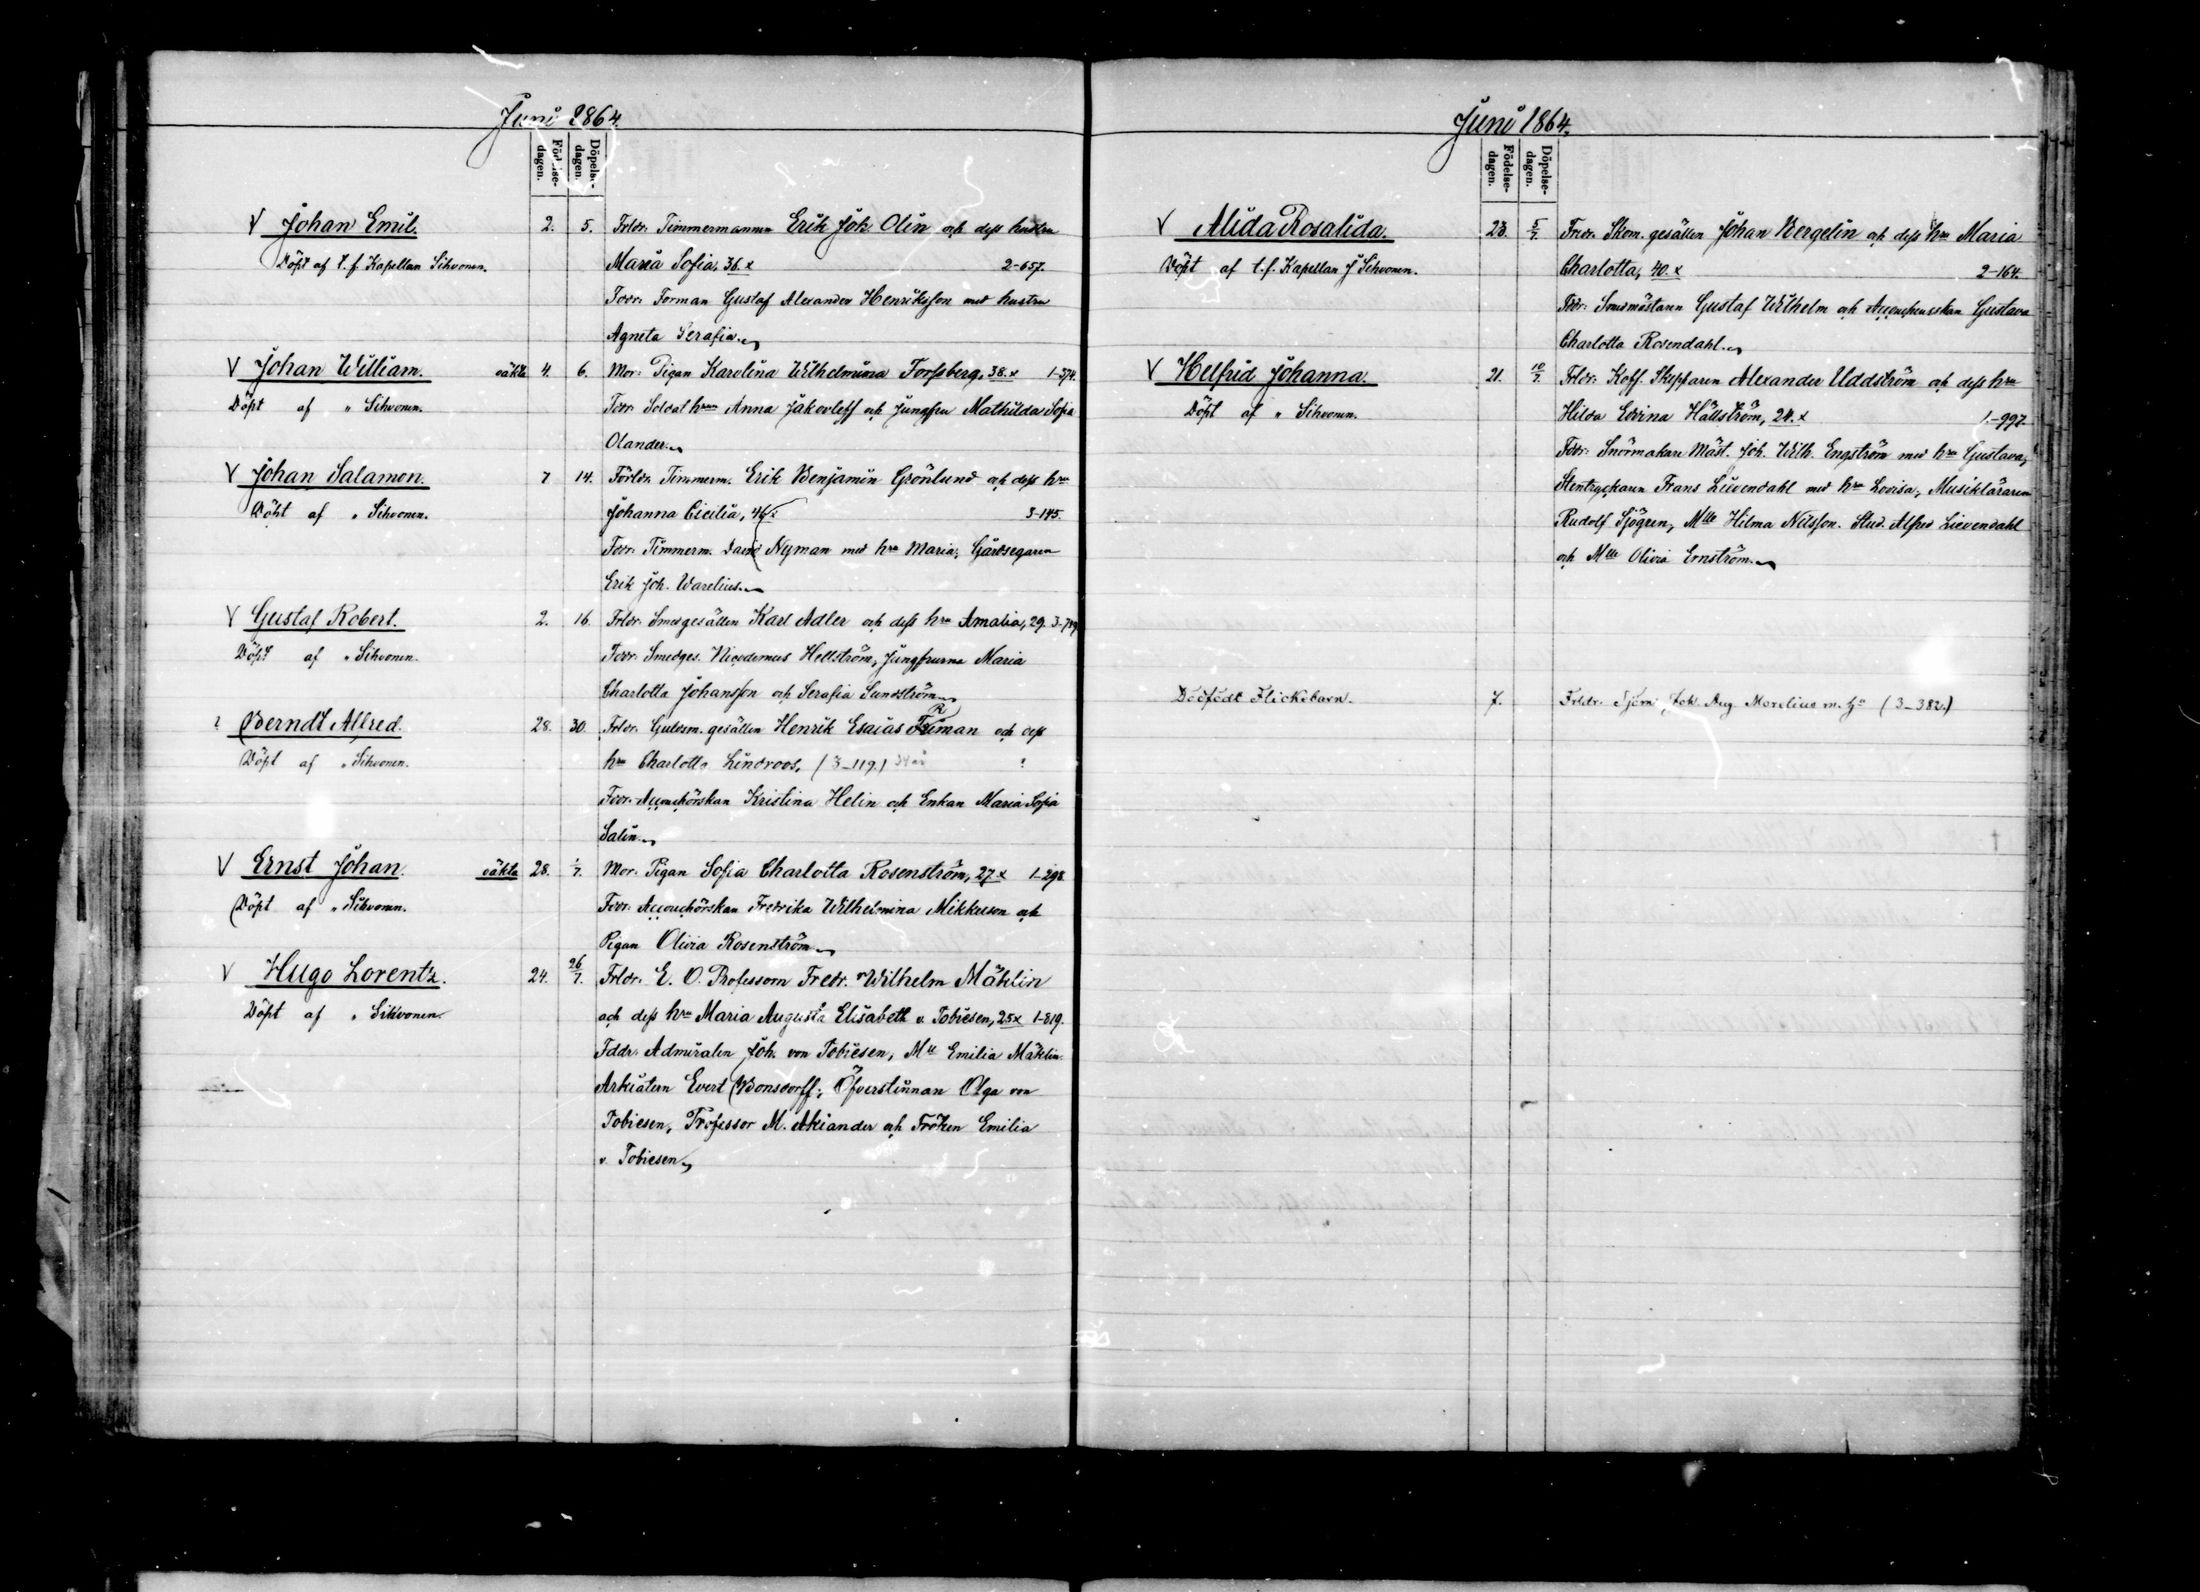 Juni 1864.
Födelse-dagen.
Döpelse-dagen.
V Johan Emil. 2. 5. Frldr. Timmermannen Erik Joh. Olin och dess hustru
Döpt af t. f. Kapellan Sihvonen. Maria Sofia, 36. x 2-657.
Fddr: Forman Gustaf Alexander Henriksson med hustru
Agneta Serafia.
V Johan William. oäkta 4. 6. Mor: Pigan Karolina Wilhelmina Forssberg, 38. x 1-374.
Döpt af " Sihvonen. Fddr: Soldat hrun Anna Jakovleff och Jungfru Mathilda Sofia
Olander.
V Johan Salamon. 7 14. Förldr. Timmerm. Erik Benjamin Grönlund och dess hru
Döpt af " Sihvonen. Johanna Cicilia, 3-145.
Fddr: Timmerm. David Nyman med hru Maria, Gårdsegaren
Erik Joh. Warelius.
V Gustaf Robert. 2. 16. Frldr. Smedgesällen Karl Adler och dess hru Amalia, 29. 3-719
Döpt af " Sihvonen. Fddr: Smedges. Nicodemus Hellström, Jungfrurna Maria
Charlotta Johansson och Serafia Sundström.
? Berndt Alfred. 28. 30. Frldr. Guldsm. gesällen Henrik Esaias Friman och dess
Döpt af " Sihvonen. hru Charlotta Lindroos, (3-119.) 34 år ?
Fddr: Accouchörskan Kristina Helin och Enkan Maria Sofia
Salin.
V Ernst Johan. oäkta 28. 1/7. Mor: Pigan Sofia Charlotta Rosenström, 27. x 1-298
Döpt af " Sihvonen. Fddr: Accouchörskan Fredrika Wilhelmina Mikkelson och
Pigan Olivia Rosenström.
V Hugo Lorentz. 24. 26/7. Frldr. E. O. Professorn Fredr. Wilhelm Mäklin
Döpt af " Sihvonen. och dess hru Maria Augusta Elisabeth v. Tobiesen, 25 x 1-819.
Fddr. Admiralen Joh. von Tobiesen, Mll Emilia Mäklin.
Arkiatern Evert Bonsdorff, Öfverstinnan Olga von
Tobiesen, Professor M. Akiander och Fröken Emilia
v. Tobiesen.
Juni 1864.
Födelse-dagen.
Döpelse-dagen.
V Alida Rosalida. 23. 5/7. Frldr. Skom. gesällen Johan Bergelin och dess hru Maria
Döpt af t. f. Kapellan J Sihvonen. Charlotta, 40. x 2-164.
Fddr: Gustaf Wilhelm och Gustava
Charlotta Rosendahl.
V Helfrid Johanna. 21. 10/7. Frldr. Koff. Skepparen Alexander Uddström och dess hru
Döpt af " Sihvonen. Hilda Edvina Hällström, 24. x 1-997.
Fddr: Snörmakare Mäst. Joh. Wilh. Engström med hru Gustava,
Stentryckaren Frans Liewendahl med hru Lovisa, Musikläraren
Rudolf Sjögren, Mlle Hilma Nilsson. Stud. Alfred Lievendahl
och Mlle Olivia Ernström.
Dödfödt Flickebarn. 7. Frldr. Joh. Aug Morelius m. hu (3-382.)